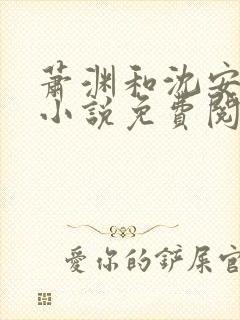 萧渊和沈安
小说免費閱
愛你的鏟屎官